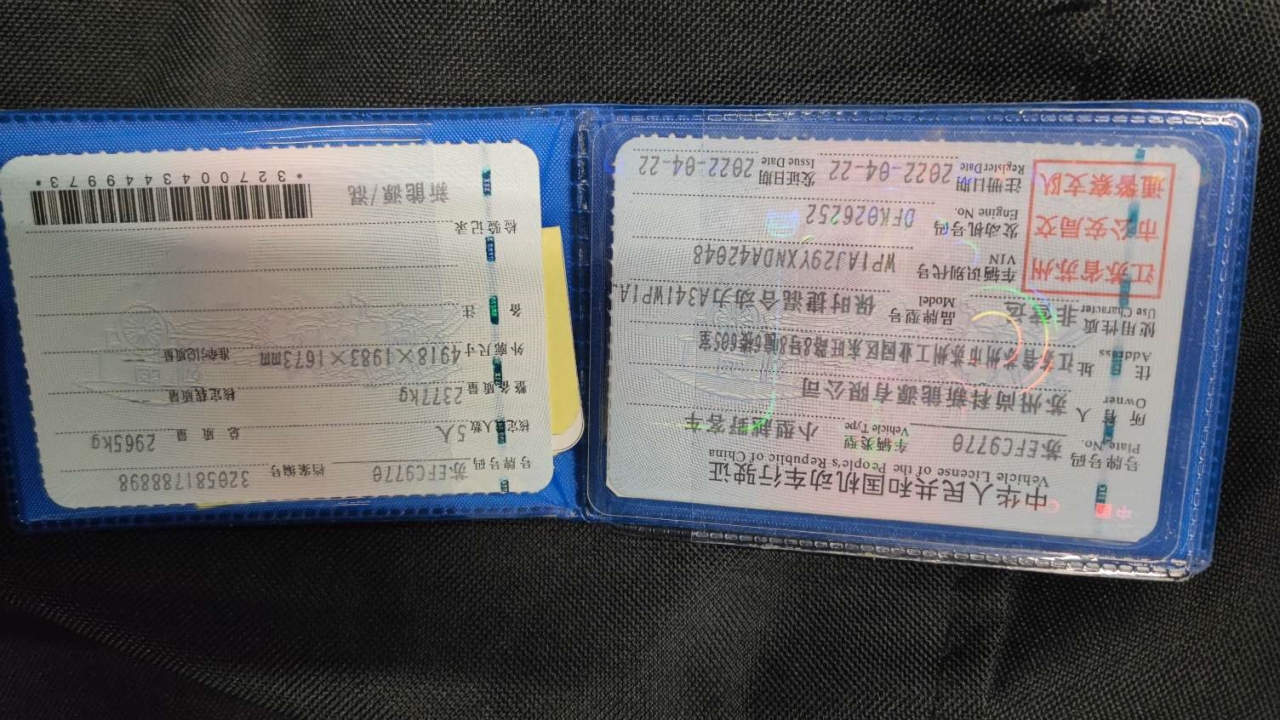 中华人民共和国机动车行驶证
Vehicle License of the People's Republic of China
号牌号码 苏EFC9770 车辆类型 小型越野客车
Plate No. Vehicle Type
所有人 苏州尚科新能源有限公司
Owner
住址 江苏省苏州市苏州工业园区东旺路8号8幢6楼605室
Address
使用性质 非营运 品牌型号 保时捷混合动力A341WP1A
Use Character Model
江苏省苏州
市公安局交
通警察支队
车辆识别代号 WP1AJ29YXNDA42048
VIN
发动机号码 DFK026252
Engine No.
注册日期 2022-04-22 发证日期 2022-04-22
Register Date Issue Date
号牌号码 苏EFC9770 档案编号 320581788898
核定人数 5人 总质量 2965kg
整备质量 2377kg 核定载质量
外廓尺寸 4918×1983×1673mm 准牵引总质量
备注
检验记录
新能源/混
*3270043449973*